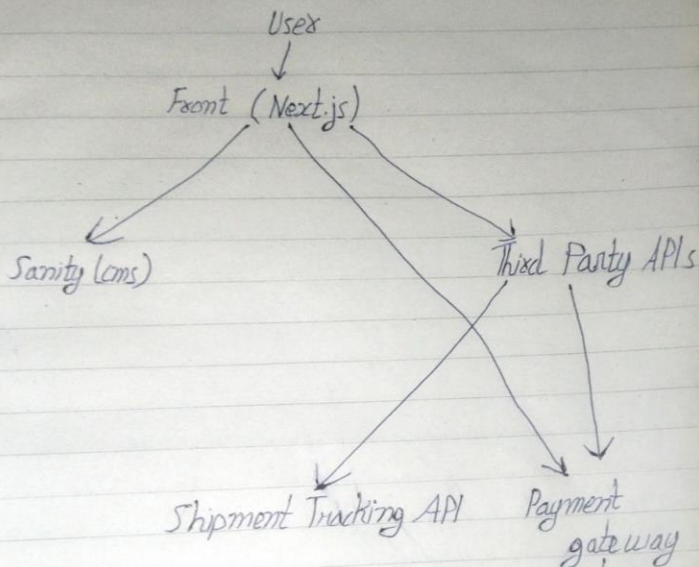 User
Front (Next.js)
Sanity (cms)
Third Party APIs
Shipment Tracking API
Payment
gateway